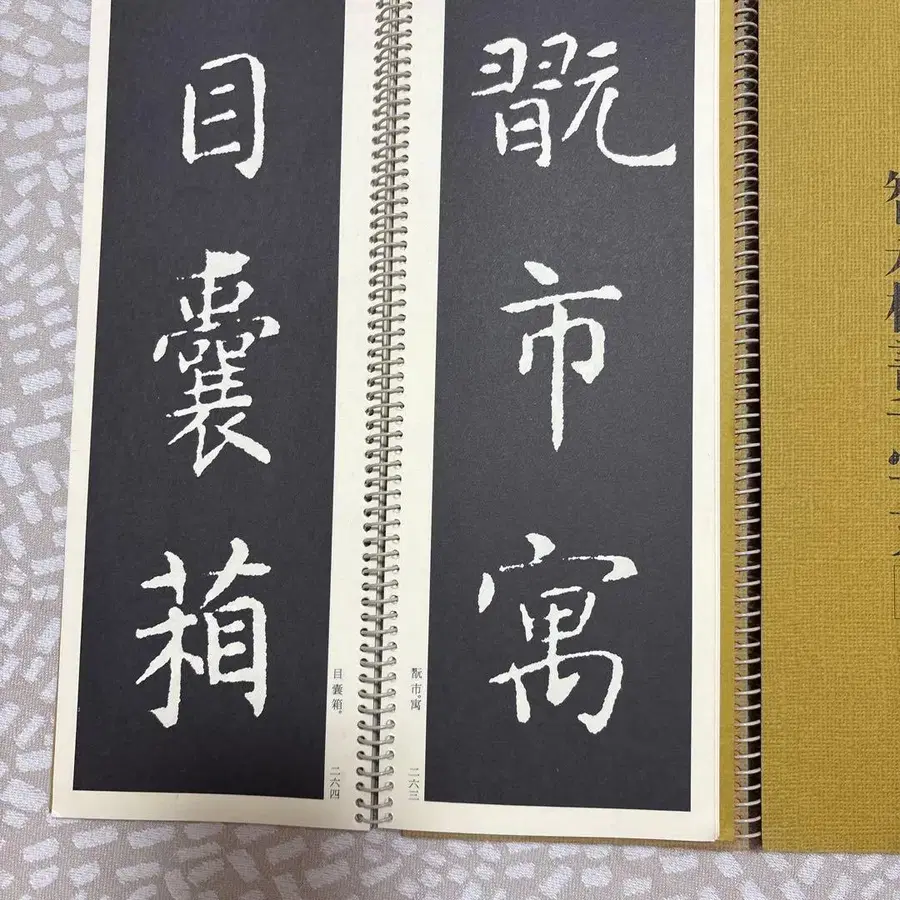 翫市寓
翫市。寓
二六三
目囊葙
目囊箱。
二六四